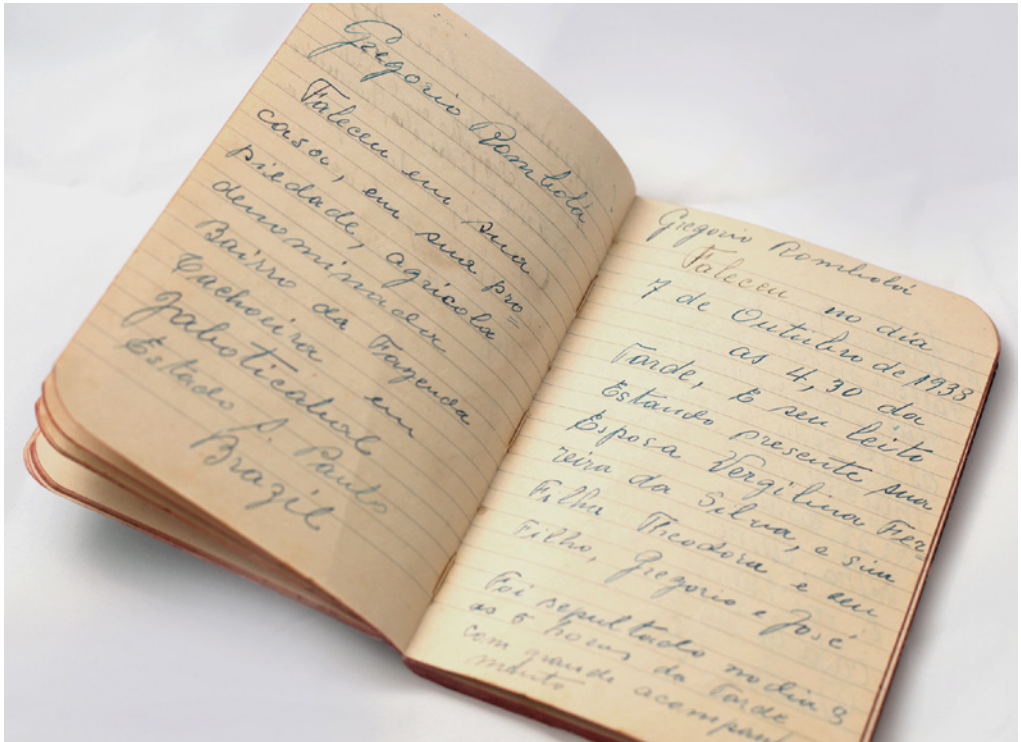 Gregorio Rombolá
Faleceu em sua
casa, em sua pro=
piedade, agricola
denominada
Bairro da Fazenda
Cachoeira em
Jaboticabal
Estado S. Paulo
Brazil
Gregorio Rombolá
Faleceu no dia
7 de Outubro de 1938
as 4,30 da
Tarde, E seu leito
Estando presente sua
Esposa Vergilina Fer
reira da Silva, e sua
Filha Theodora e seu
Filho, Gregorio e José
Foi sepultado no dia
as horas da Tarde
com grande acompanha
mento